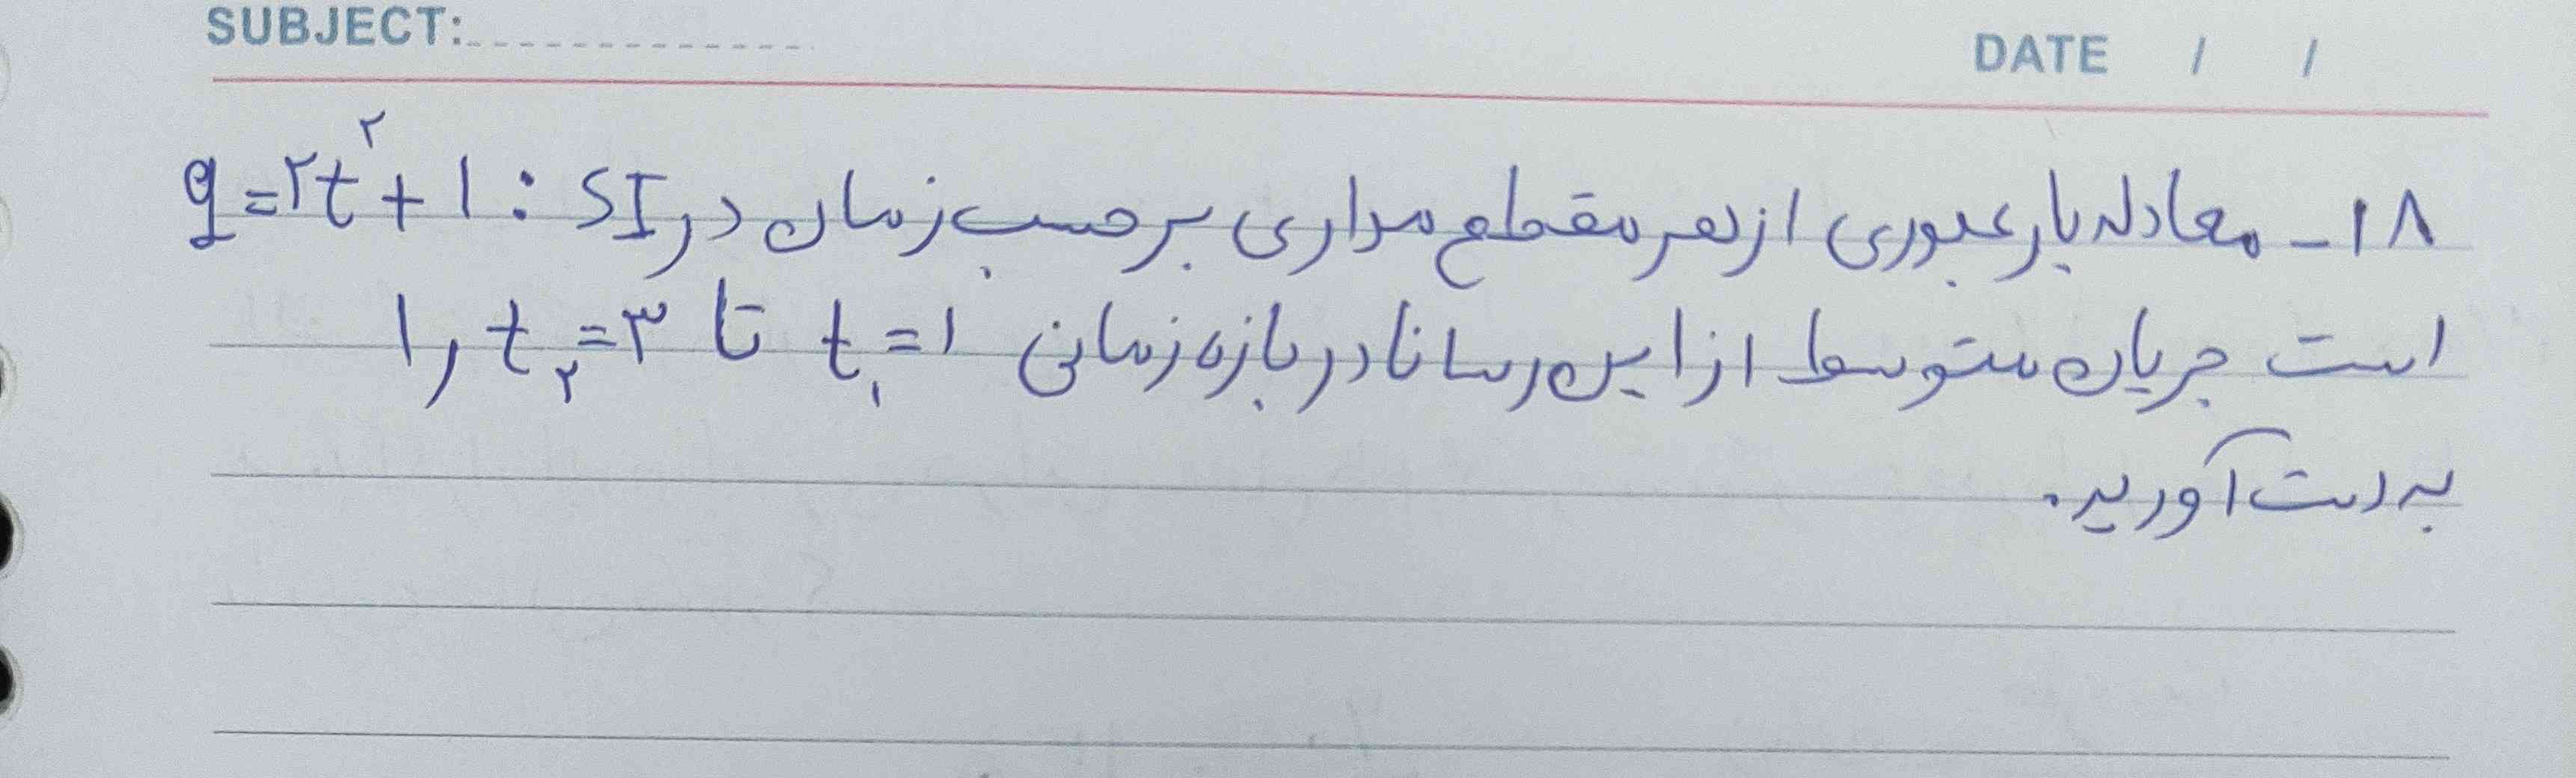 SUBJECT:
DATE / /
۱۸- معادله بار عبوری از هر مقطع مداری برحسب زمان در SI : q=۲t^۲+۱
است جریان متوسط از این رسانا در بازه زمانی t₁=۱ تا t₂=۳ را
به دست آورید.